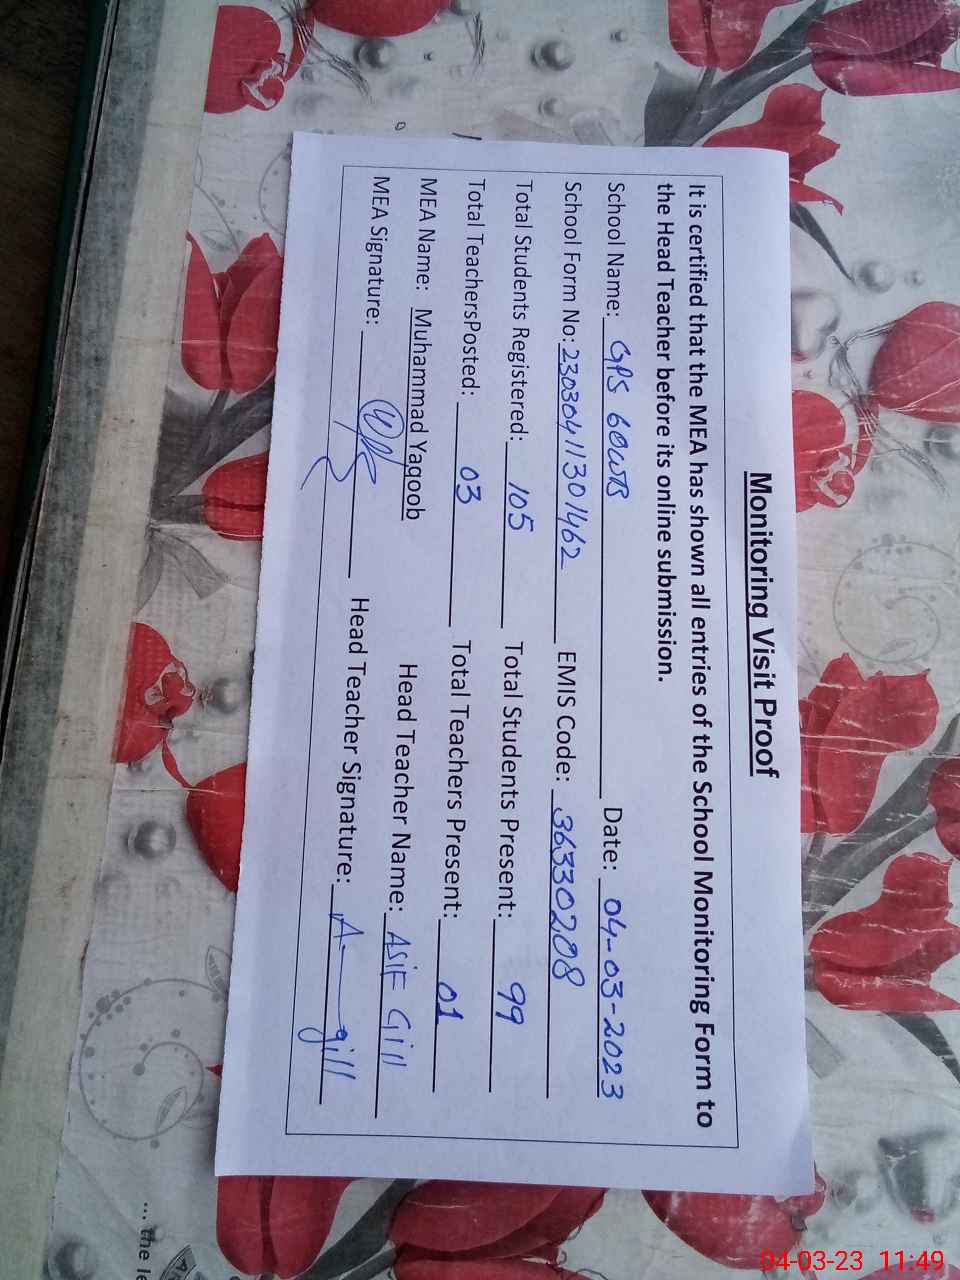 Monitoring Visit Proof
It is certified that the MEA has shown all entries of the School Monitoring Form to
the Head Teacher before its online submission.
School Name: GPS 60WB Date: 04-03-2023
School Form No: 23030411301462 EMIS Code: 36330208
Total Students Registered: 105 Total Students Present: 99
Total TeachersPosted: 03 Total Teachers Present: 01
MEA Name: Muhammad Yaqoob Head Teacher Name: ASIF Gill
MEA Signature: Head Teacher Signature: A gill
... the le
04-03-23 11:49